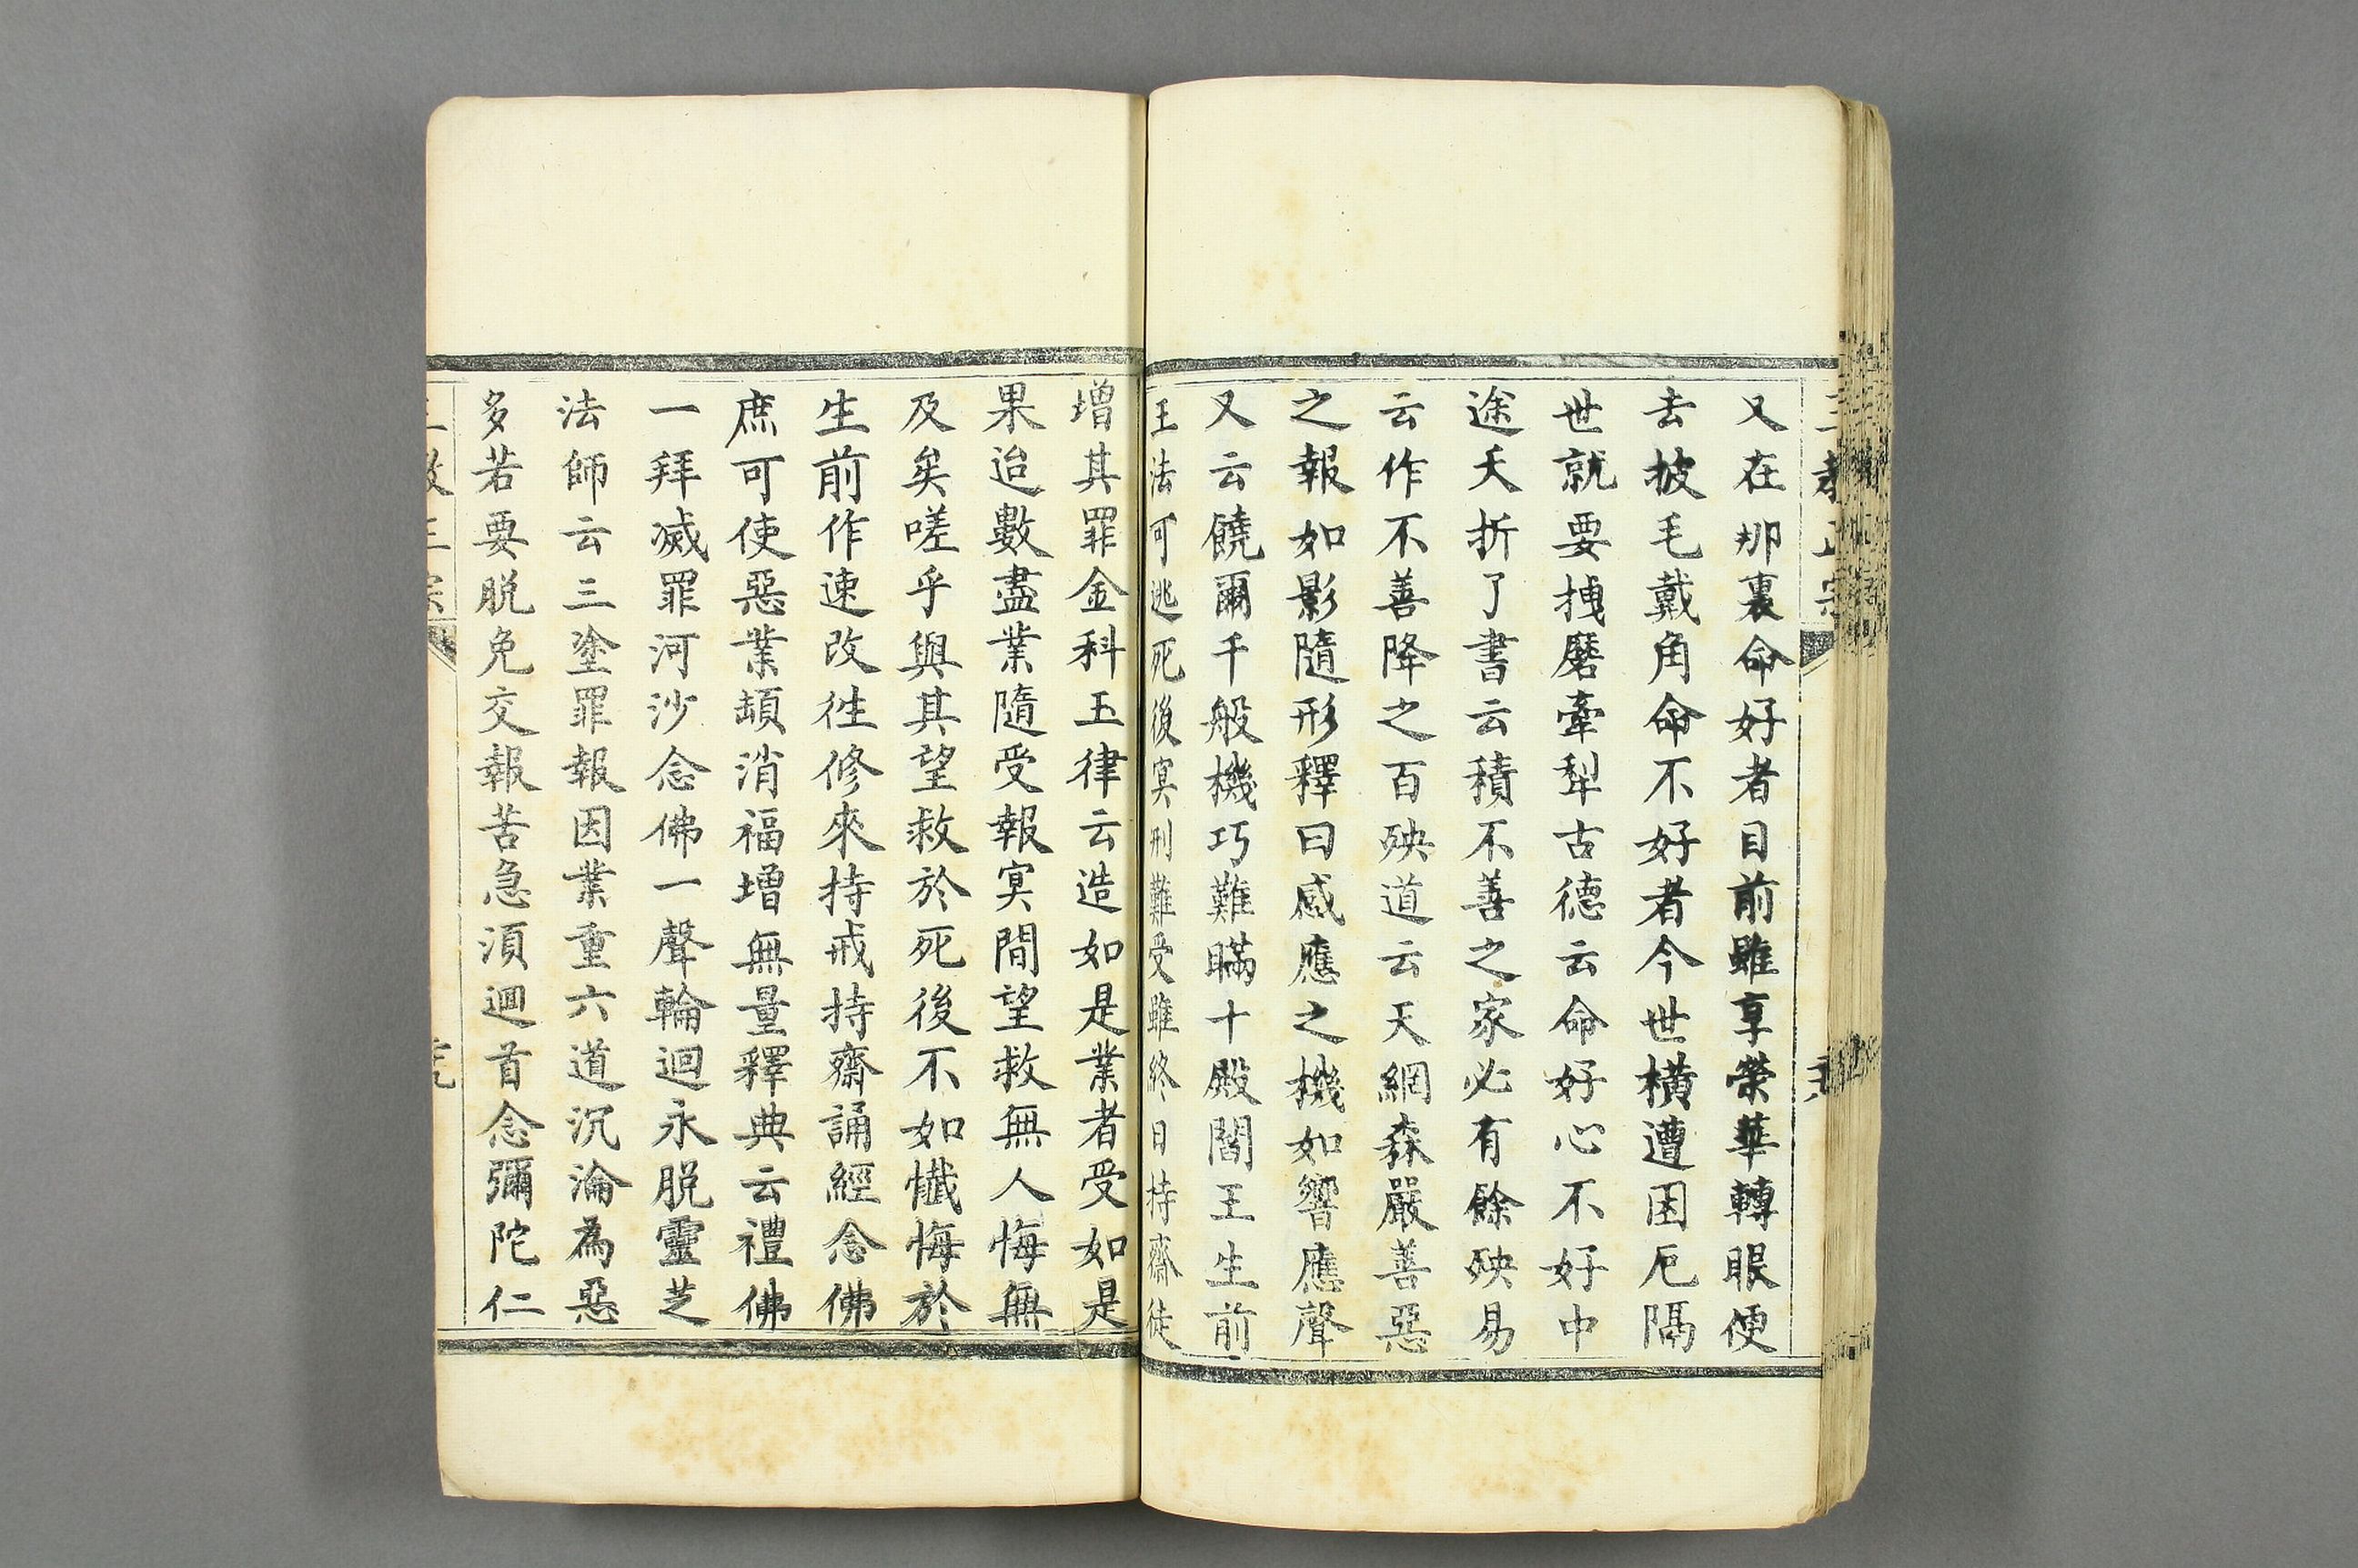 又在那裏命好者目前雖享榮華轉眼便
去披毛戴角命不好者今世橫遭困厄隔
世就要拽磨牽犁古德云命好心不好中
途夭折了書云積不善之家必有餘殃易
云作不善降之百殃道云天網森嚴善惡
之報如影隨形釋曰感應之機如響應聲
又云饒爾千般機巧難瞞十殿閻王生前
王法可逃死後冥刑難受雖終日持齋徒
增其罪金科玉律云造如是業者受如是
果迨數盡業隨受報冥間望救無人悔無
及矣嗟乎與其望救於死後不如懺悔於
生前作速改徃修來持戒持齋誦經念佛
庶可使惡業頓消福增無量釋典云禮佛
一拜滅罪河沙念佛一聲輪迴永脫靈芝
法師云三塗罪報因業重六道沉淪為惡
多若要脫免交報苦急須迴首念彌陀仁